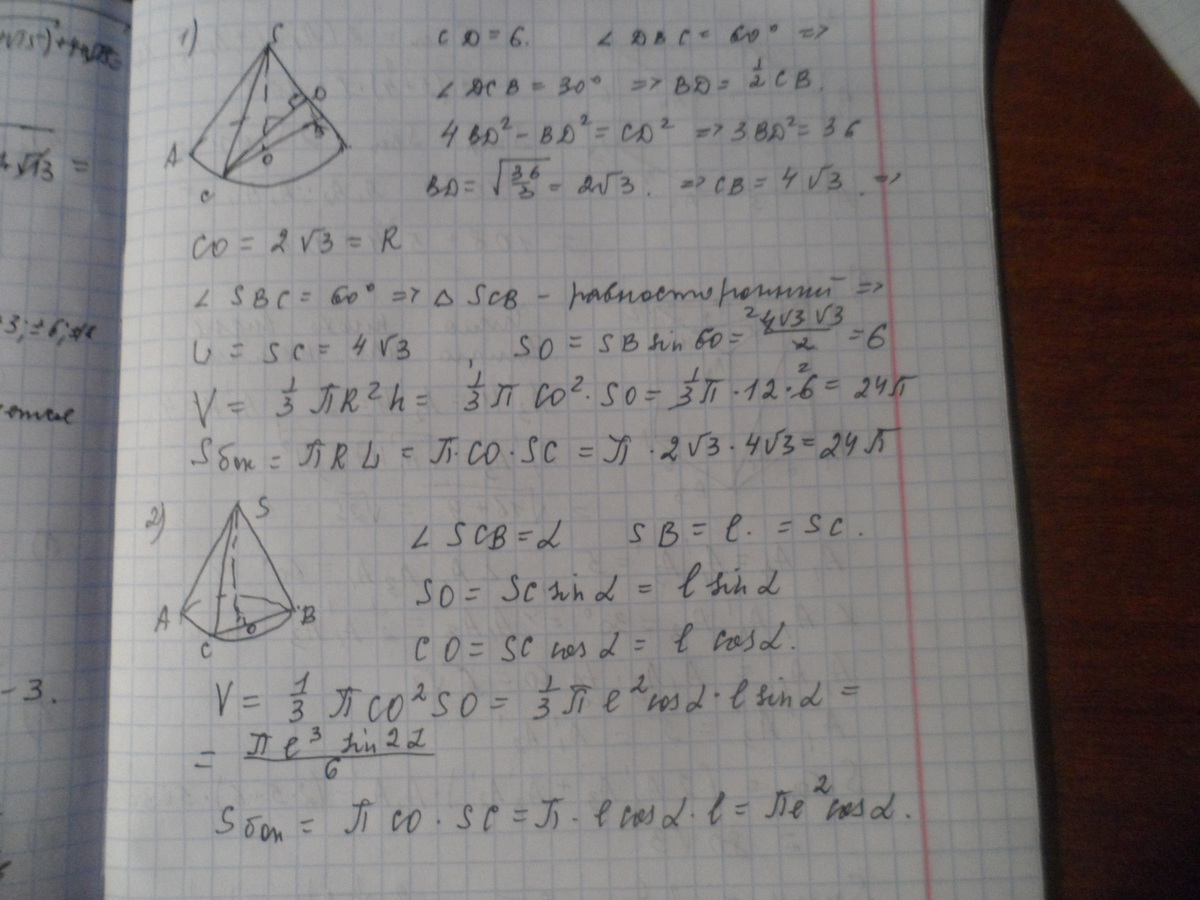 1)
S
A
C
O
D
CD = 6. ∠DBC = 60° =>
∠DCB = 30° => BD = 1/2 CB.
4BD² - BD² = CD² => 3BD² = 36
BD = √(36/3) = 2√3. => CB = 4√3. =>
CO = 2√3 = R
∠SBC = 60° => △SCB - равносторонний =>
L = SC = 4√3, SO = SB sin 60 = ²4√3 √3/2 = 6
V = 1/3 πR²h = 1/3 π CO² · SO = 1/3 π · 12 · 6² = 24π
Sбок = πRL = π · CO · SC = π · 2√3 · 4√3 = 24π
2)
S
A
B
C
O
∠SCB = α SB = l. = SC.
SO = SC sin α = l sin α
CO = SC cos α = l cos α.
V = 1/3 π CO² SO = 1/3 π l² cos α · l sin α =
= π l³ sin 2α/6
Sбок = π CO · SC = π · l cos α · l = πl² cos α.
- 3.